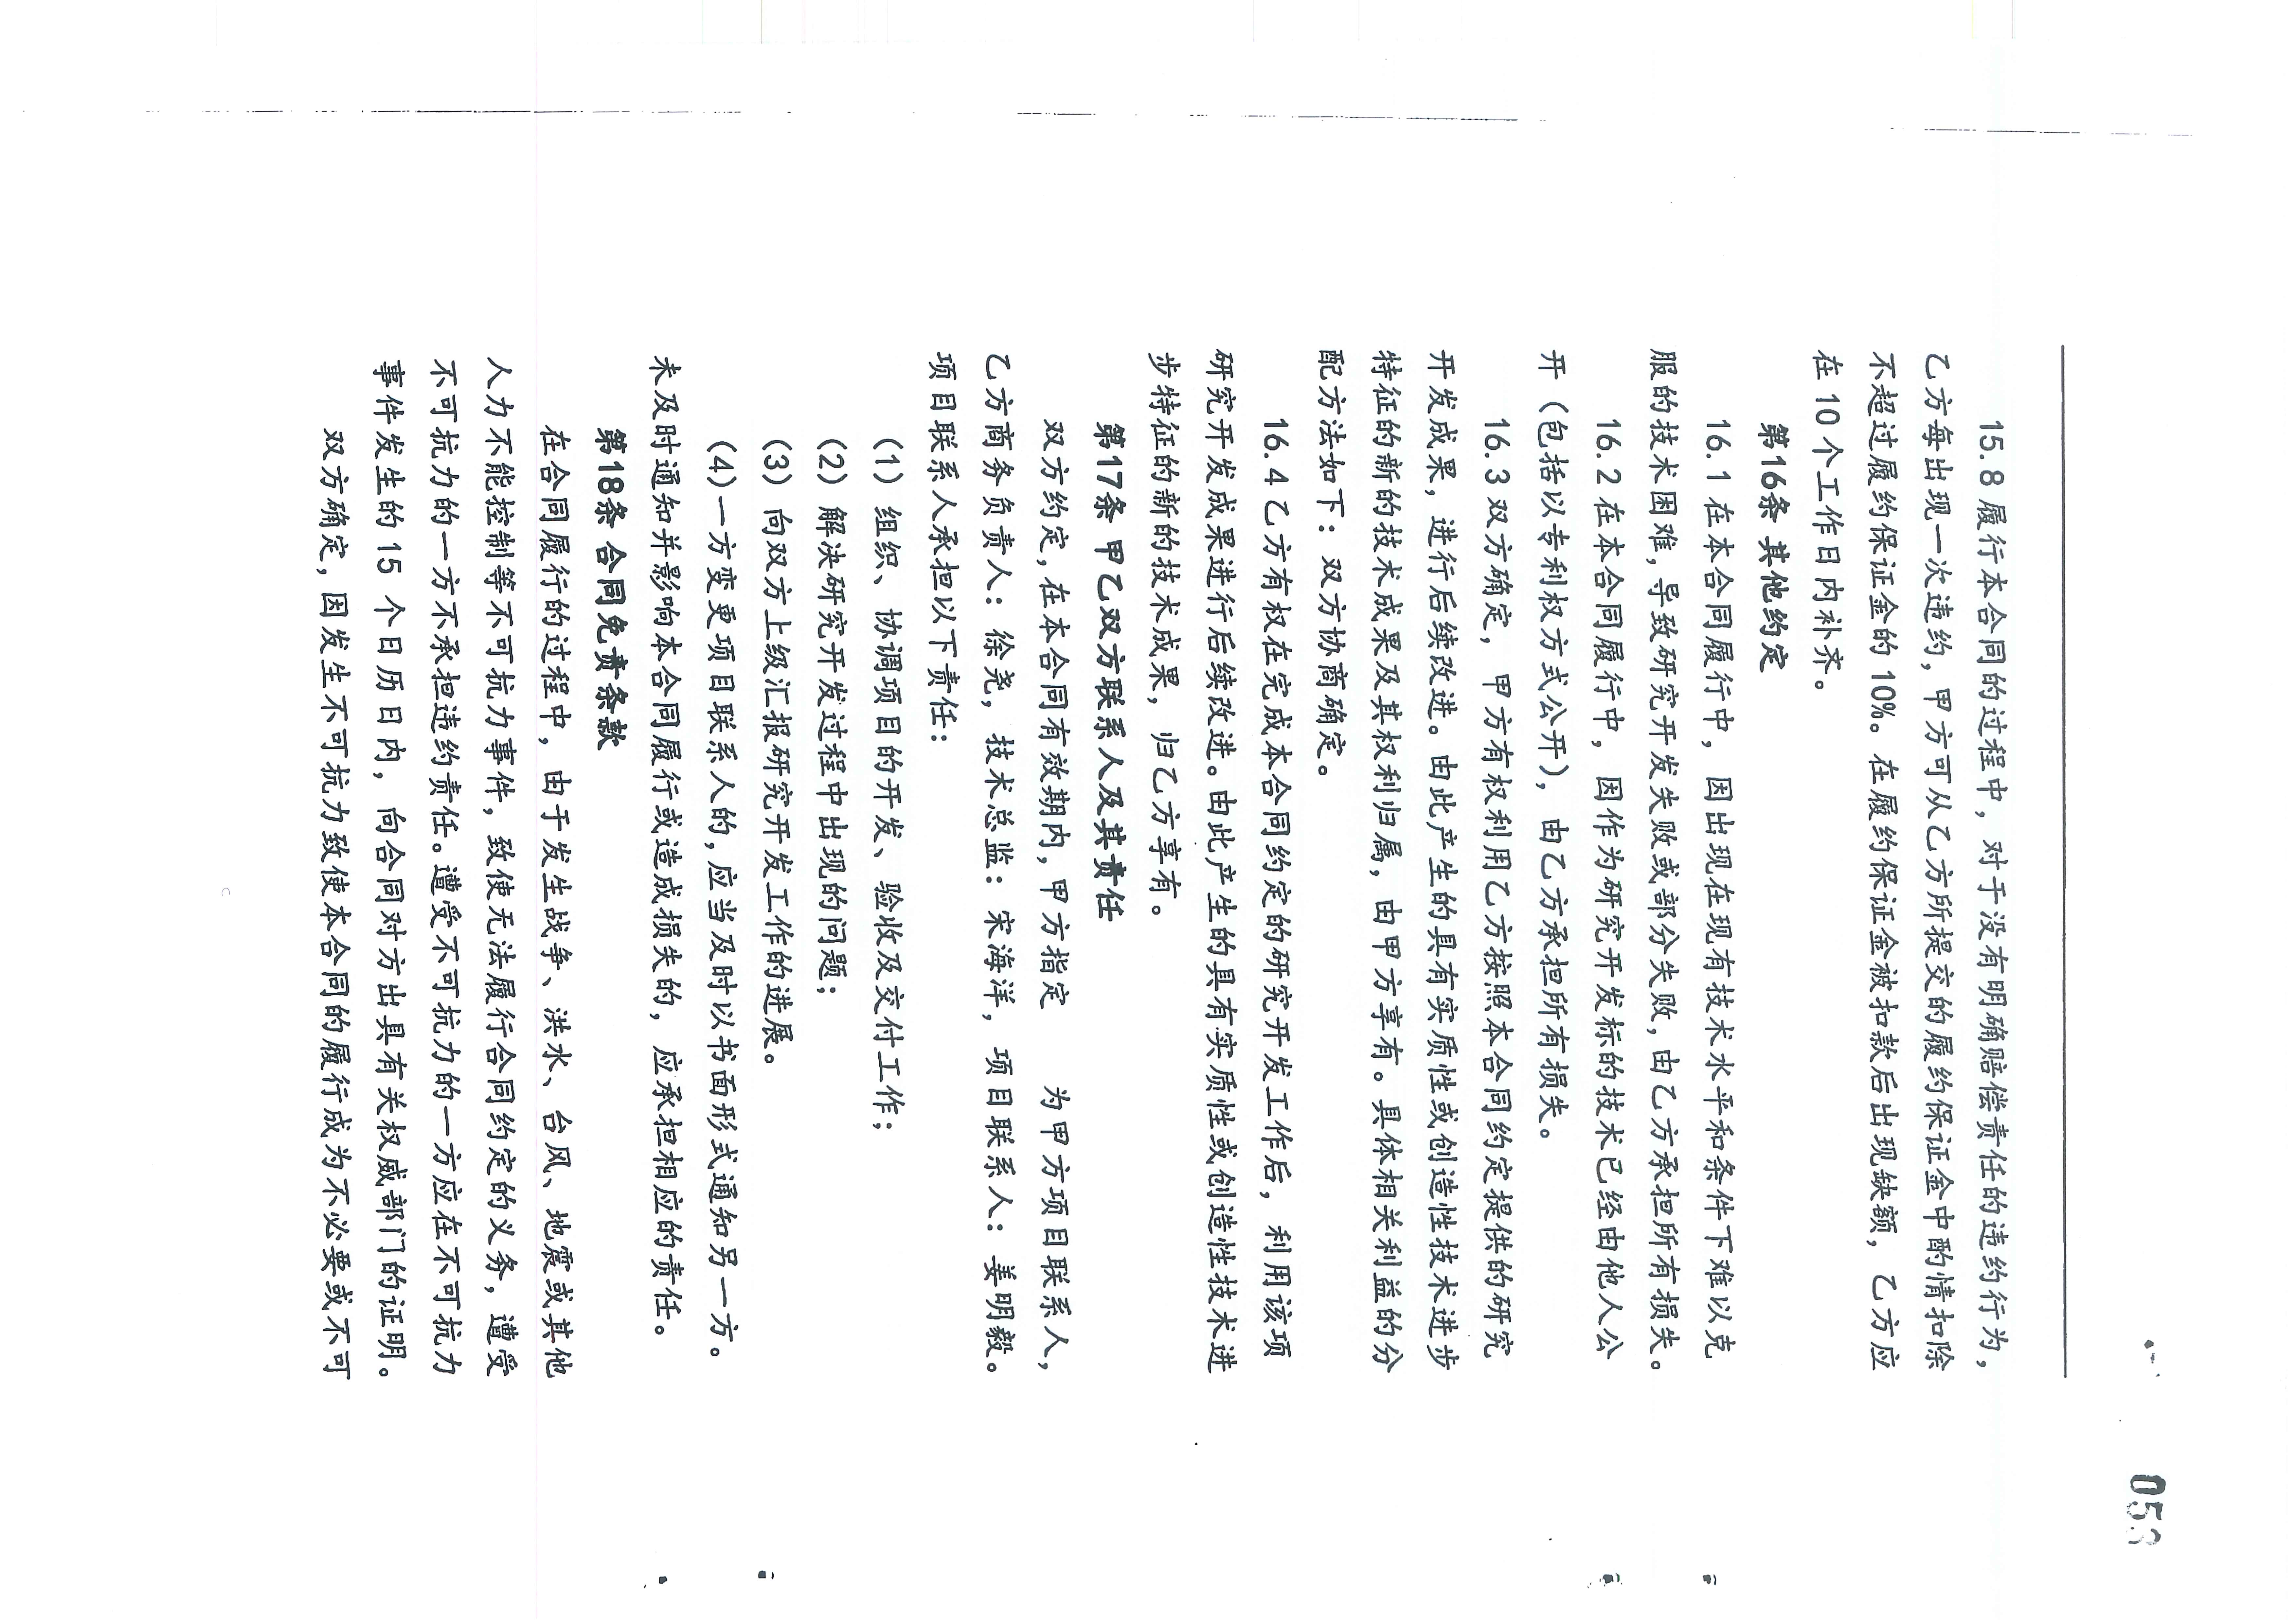 15.8 履行本合同的过程中，对于没有明确赔偿责任的违约行为，
乙方每出现一次违约，甲方可从乙方所提交的履约保证金中酌情扣除
不超过履约保证金的 10%。在履约保证金被扣款后出现缺额，乙方应
在 10 个工作日内补齐。
第16条 其他约定
16.1 在本合同履行中，因出现在现有技术水平和条件下难以克
服的技术困难，导致研究开发失败或部分失败，由乙方承担所有损失。
16.2 在本合同履行中，因作为研究开发标的技术已经由他人公
开（包括以专利权方式公开），由乙方承担所有损失。
16.3 双方确定，甲方有权利用乙方按照本合同约定提供的研究
开发成果，进行后续改进。由此产生的具有实质性或创造性技术进步
特征的新的技术成果及其权利归属，由甲方享有。具体相关利益的分
配方法如下：双方协商确定。
16.4 乙方有权在完成本合同约定的研究开发工作后，利用该项
研究开发成果进行后续改进。由此产生的具有实质性或创造性技术进
步特征的新的技术成果，归乙方享有。
第17条 甲乙双方联系人及其责任
双方约定，在本合同有效期内，甲方指定 为甲方项目联系人，
乙方商务负责人：徐尧，技术总监：宋海洋，项目联系人：姜明毅。
项目联系人承担以下责任：
（1）组织、协调项目的开发、验收及交付工作；
（2）解决研究开发过程中出现的问题；
（3）向双方上级汇报研究开发工作的进展。
（4）一方变更项目联系人的，应当及时以书面形式通知另一方。
未及时通知并影响本合同履行或造成损失的，应承担相应的责任。
第18条 合同免责条款
在合同履行的过程中，由于发生战争、洪水、台风、地震或其他
人力不能控制等不可抗力事件，致使无法履行合同约定的义务，遭受
不可抗力的一方不承担违约责任。遭受不可抗力的一方应在不可抗力
事件发生的 15 个日历日内，向合同对方出具有关权威部门的证明。
双方确定，因发生不可抗力致使本合同的履行成为不必要或不可